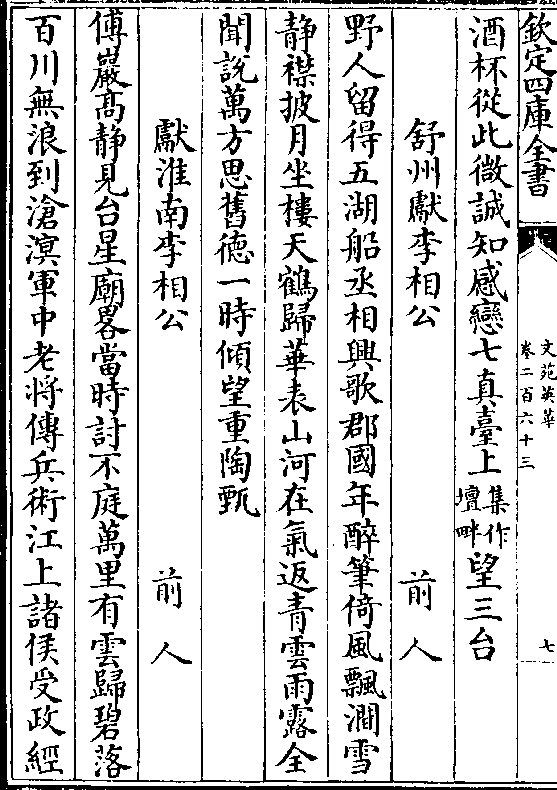 欽定四庫全書
文苑英華
卷二百六十三
七
酒杯從此微誠知感戀七真臺上集作壇畔望三台
舒州獻李相公 前人
野人留得五湖船丞相興歌郡國年醉筆倚風飄澗雪
静襟披月坐樓天鶴歸華表山河在氣返青雲雨露全
聞說萬方思舊德一時傾望重陶甄
獻淮南李相公 前人
傅巖髙静見台星廟畧當時討不庭萬里有雲歸碧落
百川無浪到滄溟軍中老將傳兵術江上諸侯受政經